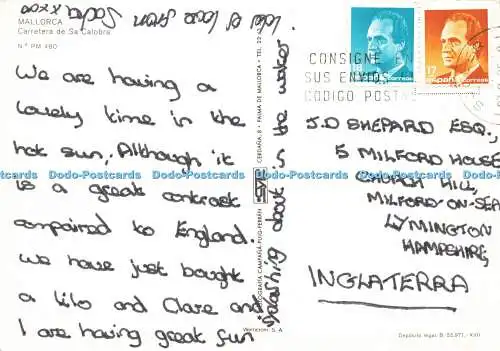 MALLORCA
Carretera de Sa Calobra
N.º PM 480
We are having a
lovely time in the
hot sun, Although it
is a great contrast
compaired to England.
We have just bought
a lilo and Clare and
I are having great fun
splashing about in the water.
love from
CERDAÑA, 8 - PALMA DE MALLORCA - TEL. 22
FOTOGRAFIA CAMPAÑÁ-PUIG-FERRÁN
CONSIGNE
SUS ENVIOS
CODIGO POSTAL
18
17
España correos
J.D SHEPARD ESQ.,
5 MILFORD HOUSE
CHURCH HILL,
MILFORD-ON-SEA
LYMINGTON
HAMPSHIRE,
INGLATERRA
Depósito legal: B. 52.971-XVII
Dodo-Postcards